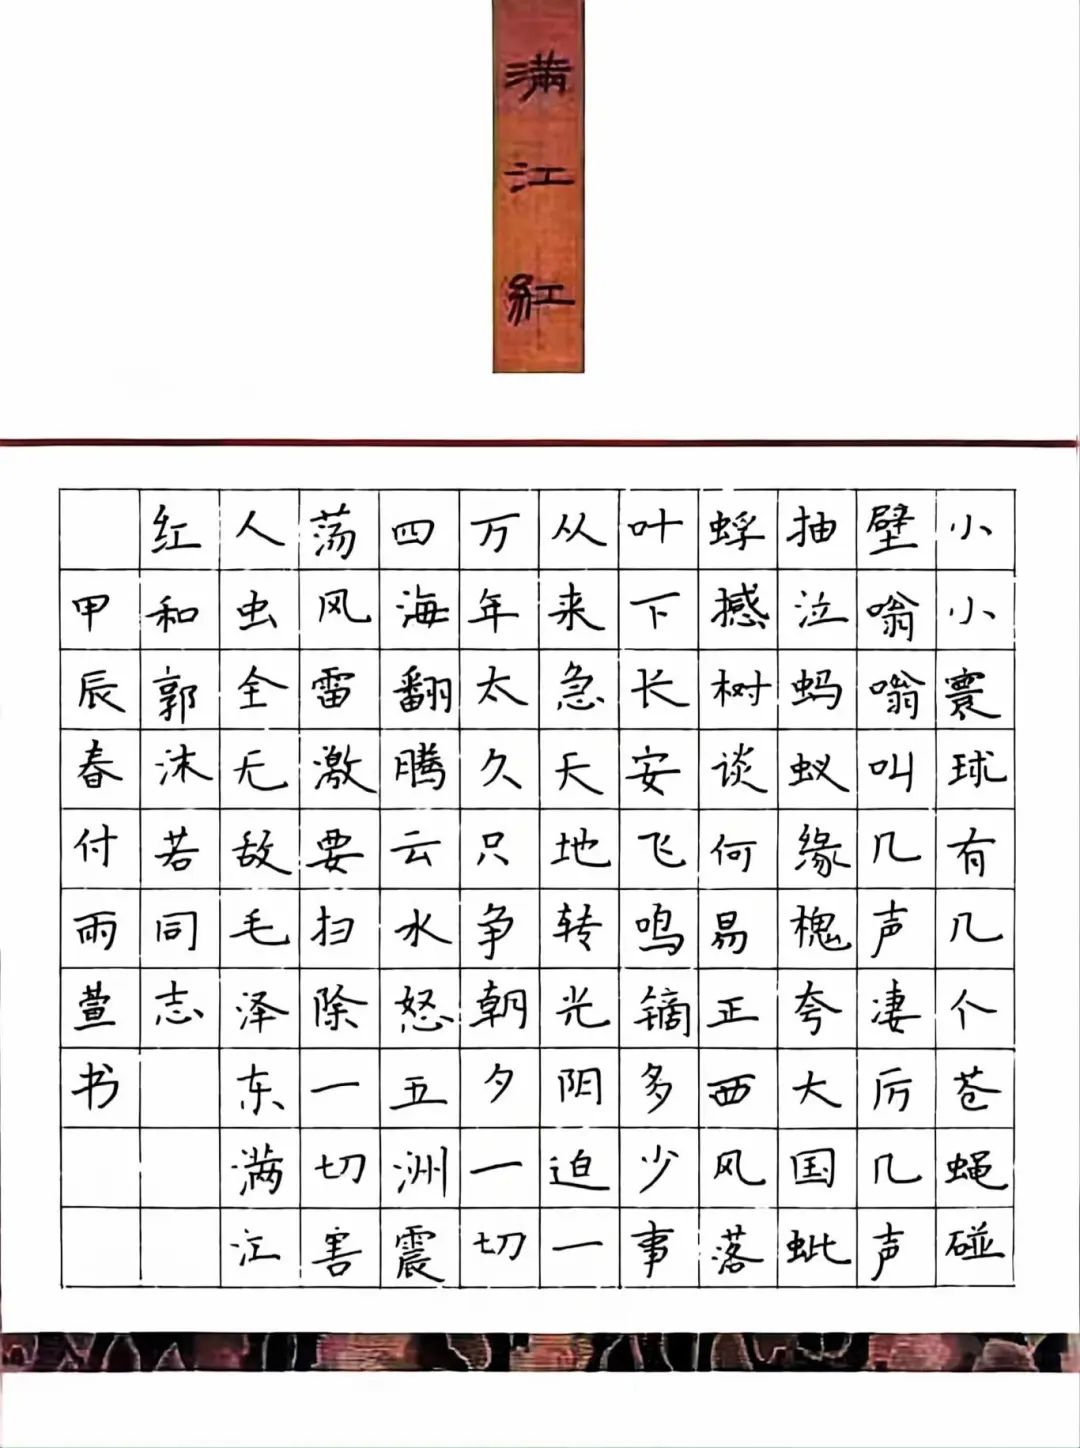 满江紅
小小寰球有几个苍蝇碰
壁嗡嗡叫几声凄厉几声
抽泣蚂蚁缘槐夸大国蚍
蜉撼树谈何易正西风落
叶下长安飞鸣镝多少事
从来急天地转光阴迫一
万年太久只争朝夕一切
四海翻腾云水怒五洲震
荡风雷激要扫除一切害
人虫全无敌毛泽东满江
红和郭沫若同志
甲辰春付雨萱书